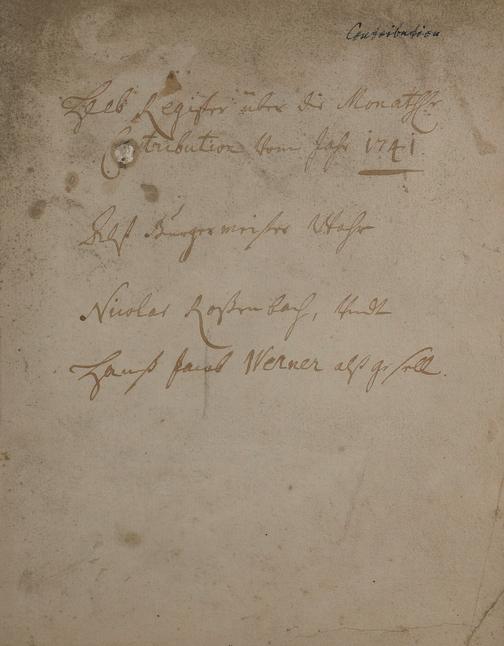 Contribution
Heb Register über die Monathl
Contribution Vom Jahr 1741
Alß Burgermeister Wahr
Nicolas Roßenbach, Undt
Hanß Jacob Werner alß gesell.